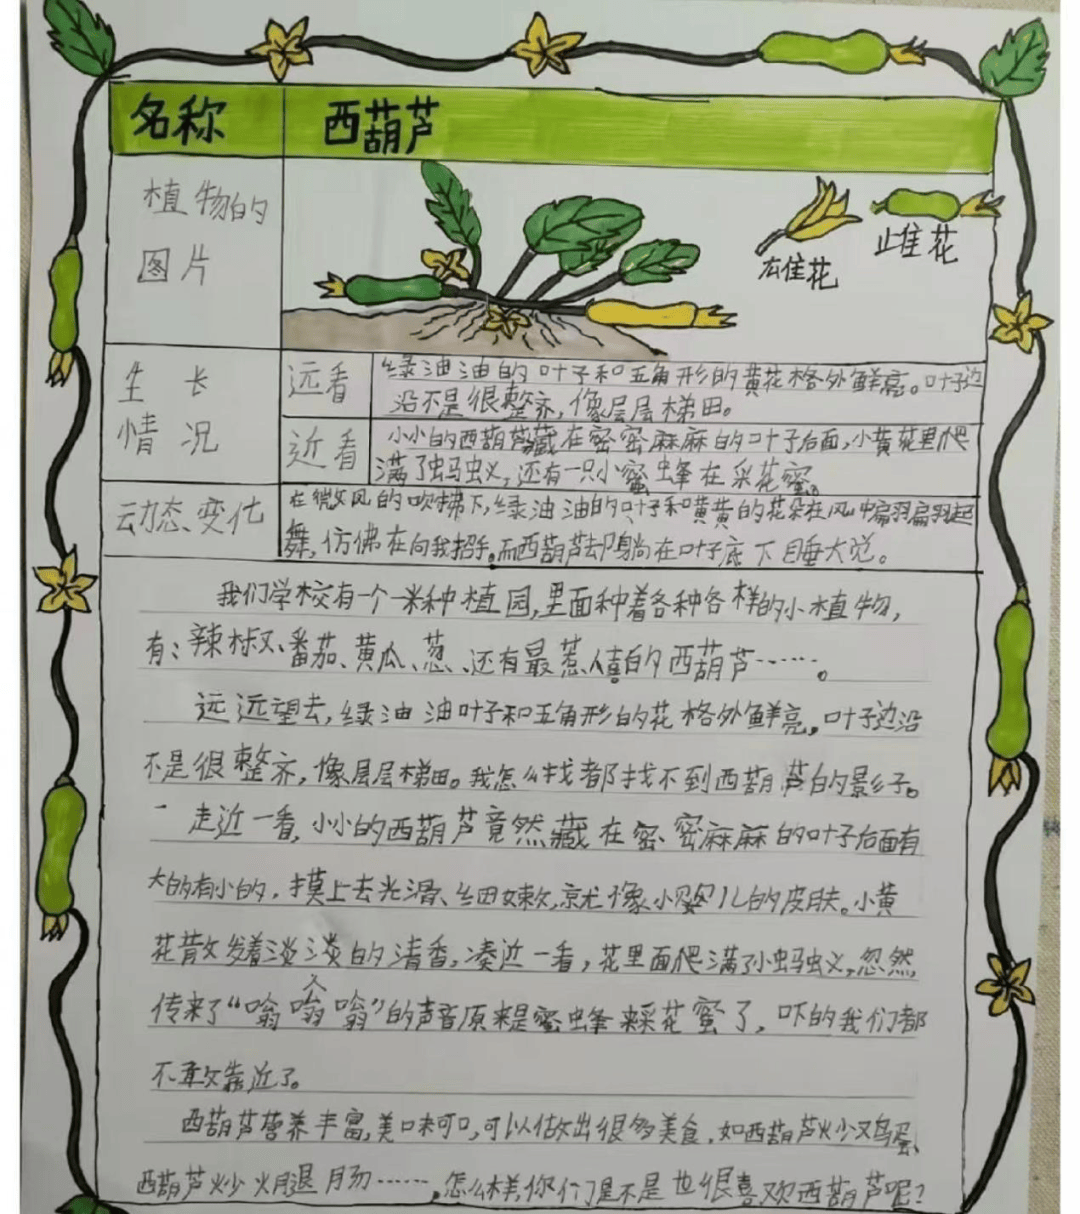 名称 西葫芦
植物的
图片
雄花
雌花
生长
情况
远看
绿油油的叶子和五角形的黄花格外鲜亮。叶子边
沿不是很整齐，像层层梯田。
近看
小小的西葫芦藏在密密麻麻的叶子后面，小黄花里爬
满了蚂蚁，还有一只小蜜蜂在采花蜜。
动态变化
在微风的吹拂下，绿油油的叶子和黄黄的花朵在风中翩翩起
舞，仿佛在向我招手。而西葫芦却躺在叶子底下睡大觉。
我们学校有一个一米种植园，里面种着各种各样的小植物，
有：辣椒、番茄、黄瓜、葱、还有最惹人的西葫芦……。
远远望去，绿油油叶子和五角形的花格外鲜亮。叶子边沿
不是很整齐，像层层梯田。我怎么找都找不到西葫芦的影子。
走近一看，小小的西葫芦竟然藏在密密麻麻的叶子后面有
大的有小的，摸上去光滑、细嫩，就像小婴儿的皮肤。小黄
花散发着淡淡的清香，凑近一看，花里面爬满了小蚂蚁，忽然
传来了“嗡嗡嗡”的声音原来是蜜蜂来采花蜜了，吓的我们都
不敢靠近了。
西葫芦营养丰富，美味可口，可以做出很多美食，如西葫芦炒鸡蛋、
西葫芦炒火腿肠……，怎么样，你们是不是也很喜欢西葫芦呢？